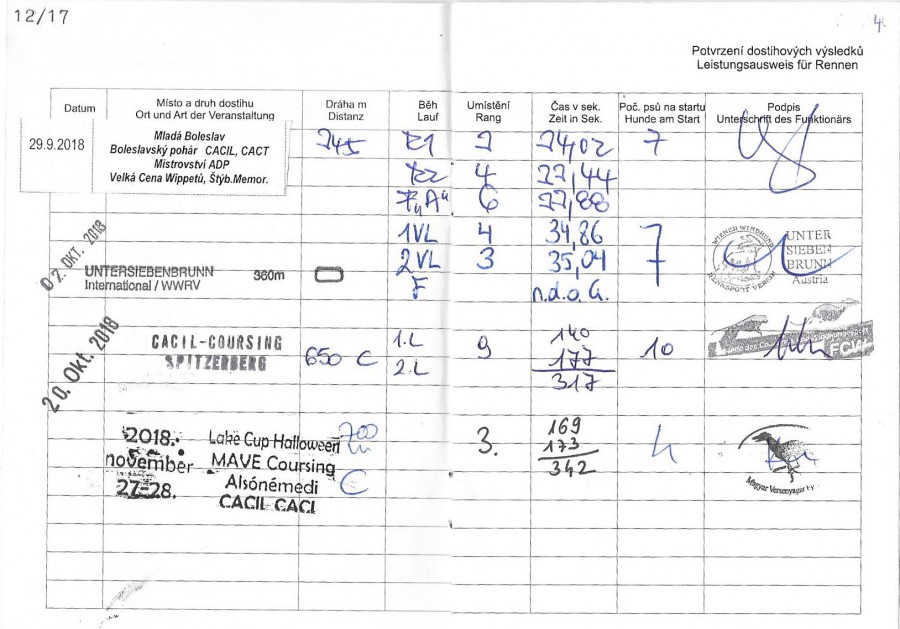 12/17
4
Potvrzení dostihových výsledků
Leistungsausweis für Rennen
Datum
Místo a druh dostihu
Ort und Art der Veranstaltung
Dráha m
Distanz
Běh
Lauf
Umístění
Rang
Čas v sek.
Zeit in Sek.
Poč. psů na startu
Hunde am Start
Podpis
Unterschrift des Funktionärs
29.9.2018
Mladá Boleslav
Boleslavský pohár CACIL, CACT
Mistrovství ADP
Velká Cena Wippetů, Štýb.Memor.
7
4
6
02. OKT. 2018
UNTERSIEBENBRUNN
International / WWRV
360m
1VL 4 34,86 7
2VL 3 35,04 7
F n.d.o.G.
WIENER WINDHUND
RENNSPORT VEREIN
UNTER
SIEBEN
BRUNN
Austria
20. Okt. 2018
CACIL-COURSING
SPITZERBERG
650 C
1.L
2.L
9
140
177
317
10
2018.
november
27-28.
Lake Cup Halloween
MAVE Coursing
Alsónémedi
CACIL CACI
700
m
C
3.
169
173
342
4
Magyar Versenyagár